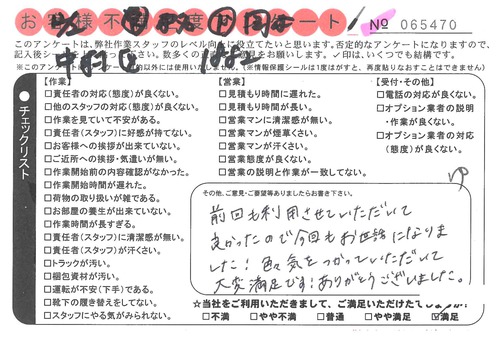 お客様不満足度アンケート
№ 065470
このアンケートは、弊社作業スタッフのレベル向上に役立てたいと思います。否定的なアンケートになりますので、
記入後シールをして下さい。数多くのご意見をお願いします。✓印は、いくつでも結構です。
チェックリスト
【作業】
□責任者の対応(態度)が良くない。
□他のスタッフの対応(態度)が良くない。
□作業を見ていて不安がある。
□責任者(スタッフ)に好感が持てない。
□お客様への挨拶が出来ていない。
□ご近所への挨拶・気遣いが無い。
□作業開始前の内容確認がなかった。
□作業開始時間が遅れた。
□荷物の取り扱いが雑である。
□お部屋の養生が出来ていない。
□作業時間が長すぎる。
□責任者(スタッフ)に清潔感が無い。
□責任者(スタッフ)が汗くさい。
□トラックが汚い。
□梱包資材が汚い。
□運転が不安(下手)である。
□靴下の履き替えをしてない。
□スタッフにやる気がみられない。
【営業】
□見積もり時間に遅れた。
□見積もり時間が長い。
□営業マンに清潔感が無い。
□営業マンが煙草くさい。
□営業マンが汗くさい。
□営業態度が良くない。
□営業の説明と作業が一致してない。
【受付・その他】
□電話の対応が良くない。
□オプション業者の説明
・作業が良くない。
□オプション業者の対応
(態度)が良くない。
その他、ご意見・ご要望等ありましたらお書き下さい。
前回も利用させていただいて
良かったので今回もお世話になりま
した!色々気をつかっていただいて
大変満足です!ありがとうございました。
☆当社をご利用いただきまして、ご満足いただけたでしょうか?
□不満 □やや不満 □普通 □やや満足 ☑満足